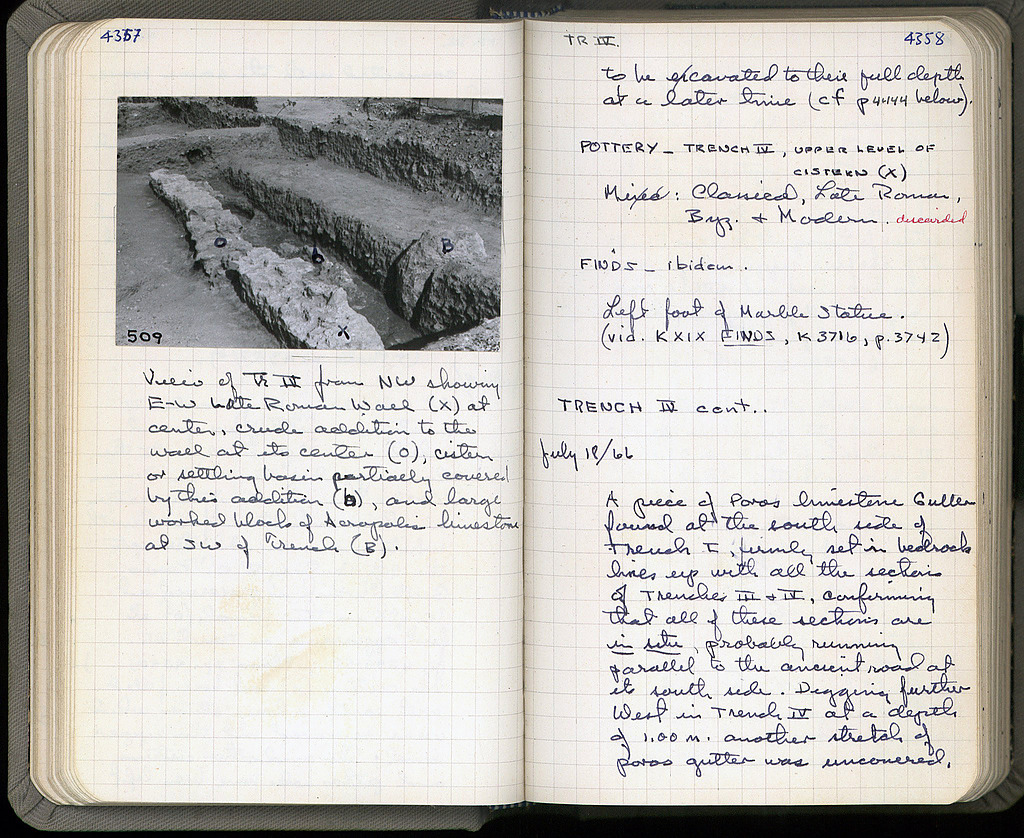 4357
O
b
B
X
509
View of Tr III from NW showing
E-W Late Roman Wall (X) at
center, crude addition to the
wall at its center (O), cistern
or settling basin partially covered
by this addition (b), and large
worked block of Acropolis limestone
at SW of Trench (B).
TR IV.
4358
to be excavated to their full depth
at a later time (cf p 4444 below).
POTTERY – TRENCH IV, UPPER LEVEL OF
CISTERN (X)
Mixed: Classical, Late Roman,
Byz. + Modern. discarded
FINDS – ibidem.
Left foot of Marble Statue.
(vid. K XIX FINDS, K 3716, p. 3742)
TRENCH IV cont..
July 18/66
A piece of Poros limestone Gutter
found at the south side of
Trench I, firmly set in bedrock
lines up with all the sections
of Trenches III + IV, confirming
that all of these sections are
in situ, probably running
parallel to the ancient road at
its south side. Digging further
West in Trench IV at a depth
of 1.00 m. another stretch of
poros gutter was uncovered.